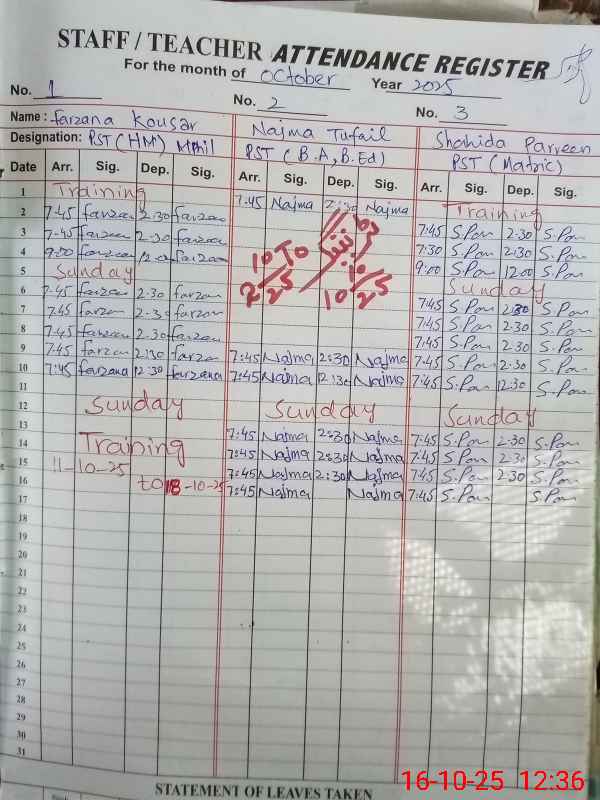 STAFF / TEACHER ATTENDANCE REGISTER
For the month of October Year 2025
No. 1 No. 2 No. 3
Name: Farzana Kousar Najma Tufail Shahida Parveen
Designation: PST (HM) Mphil PST (B.A, B.Ed) PST (Matric)
Date Arr. Sig. Dep. Sig. Arr. Sig. Dep. Sig. Arr. Sig. Dep. Sig.
1 Training 7:45 Najma 2:30 Najma Training
2 7-45 farzan 2-30 farzan
3 7-45 farzan 2-30 farzan 7:45 S.Par 2-30 S.Par
4 9:00 farzan 12-00 farzan 10 To 7:30 S.Par 2:30 S.Par
5 Sunday 2 25 10 25 9:00 S.Par 12:00 S.Par
6 7-45 farzan 2-30 farzan Sunday
7 7.45 farzan 2-30 farzan 7:45 S.Par 2:30 S.Par
8 7-45 farzan 2.30 farzan 7:45 S.Par 2-30 S.Par
9 7-45 farzan 2:30 farzan 7:45 Najma 2:30 Najma 7-45 S.Par 2-30 S.Par
10 7:45 farzana 12-30 farzana 7:45 Najma 12:30 Najma 7:45 S.Par 12:30 S.Par
11
12 Sunday Sunday Sunday
13 7:45 Najma 2:30 Najma 7:45 S.Par 2-30 S.Par
14 Training 7:45 Najma 2:30 Najma 7:45 S.Par 2:30 S.Par
15 11-10-25 7:45 Najma 2:30 Najma 7:45 S.Par 2-30 S.Par
16 to 18-10-25 7:45 Najma Najma 7:45 S.Par S.Par
17
18
19
20
21
22
23
24
25
26
27
28
29
30
31
STATEMENT OF LEAVES TAKEN
16-10-25 12:36